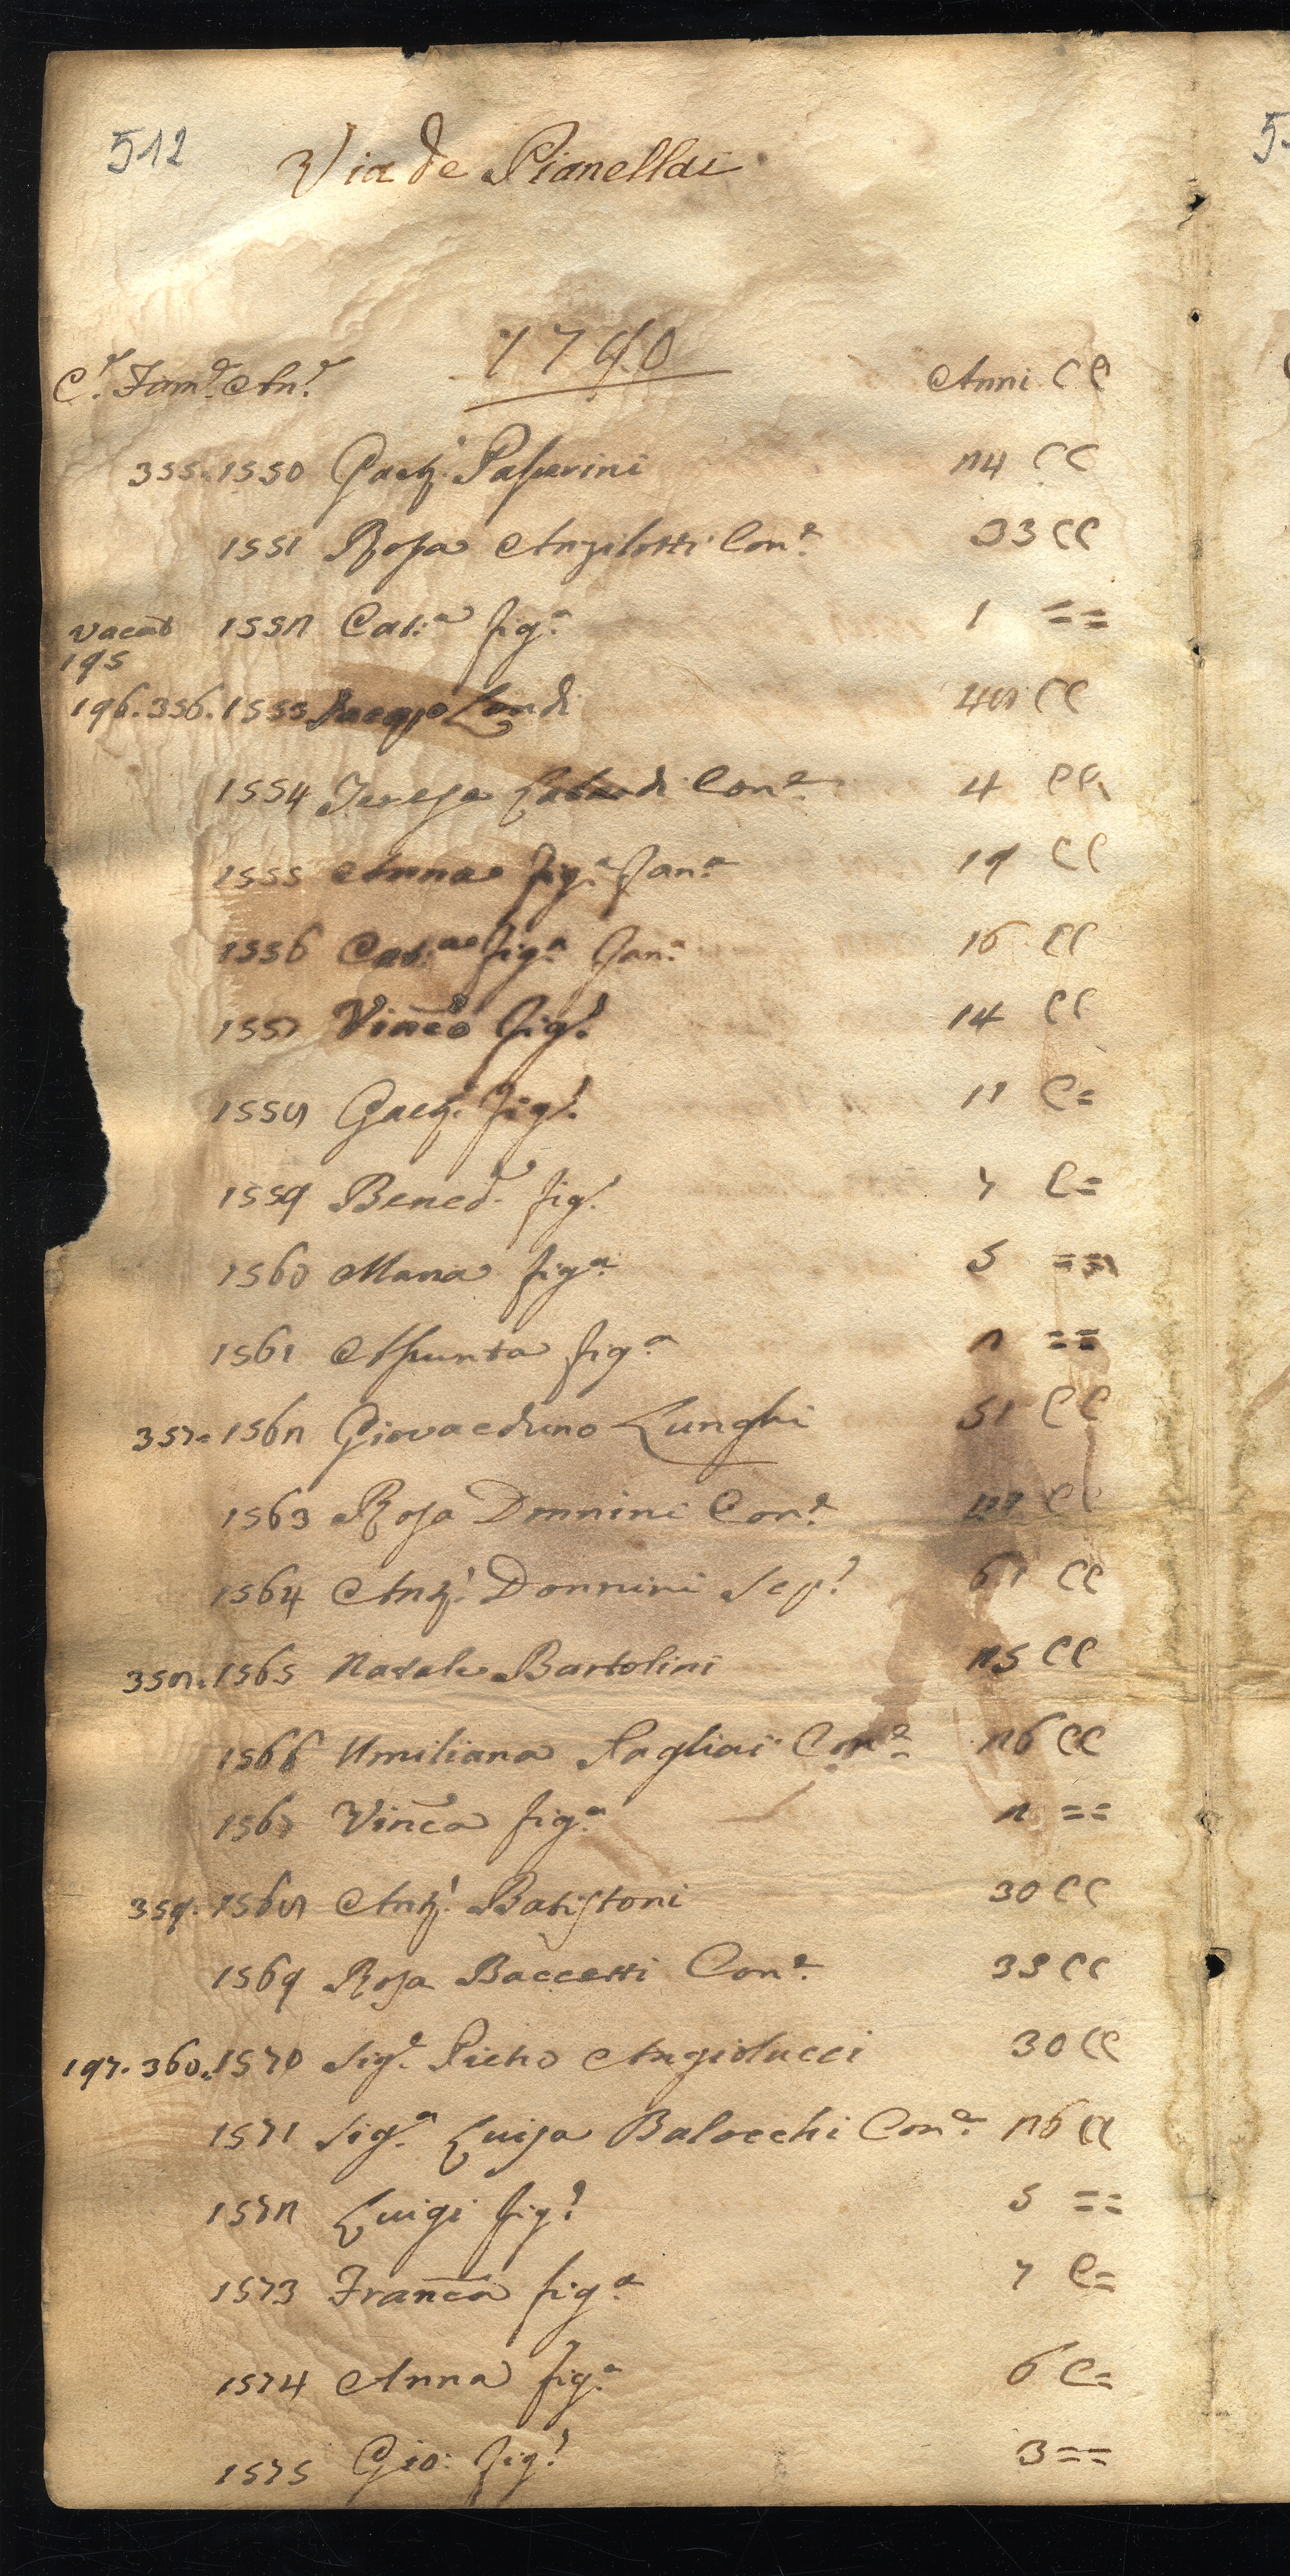 512
Via de Pianellai
1790
C.ª Fam.ª An.ª Anni CC
355. 1550 Gaet.º Paperini 24 CC
1551 Rosa Angilotti Con.e 33 CC
vacat 1552 Cat.a fig.a 1 ==
195
196. 356. 1553 Jacopo Landi 48 CC
1554 Teresa Con.e 4 CC
1555 Anna fig.a Fan.a 19 CC
1556 Cat.a fig.a Fan.a 16 CC
1557 Vinc̄o fig.º 14 CC
1558 Gaet.º fig.º 11 C=
1559 Bened.º fig.º 7 C=
1560 Maria fig.a 5 ==
1561 Assunta fig.a 2 ==
357. 1562 Giovacchino Lunghi 51 CC
1563 Rosa Donnini Con.e CC
1564 Ant.º Donnini Sep.º 61 CC
358. 1565 Natale Bartolini 25 CC
1566 Umiliana Pagliai Con.e 26 CC
1567 Vinc̄a fig.a 2 ==
359. 1568 Ant.º Batistoni 30 CC
1569 Rosa Baccetti Con.e 33 CC
197. 360. 1570 Sig.e Pietro Angiolucci 30 CC
1571 Sig.a Luisa Balocchi Con.e 26 CC
1572 Luigi fig.º 5 ==
1573 Franc̄a fig.a 7 C=
1574 Anna fig.a 6 C=
1575 Gio: fig.º 3 ==